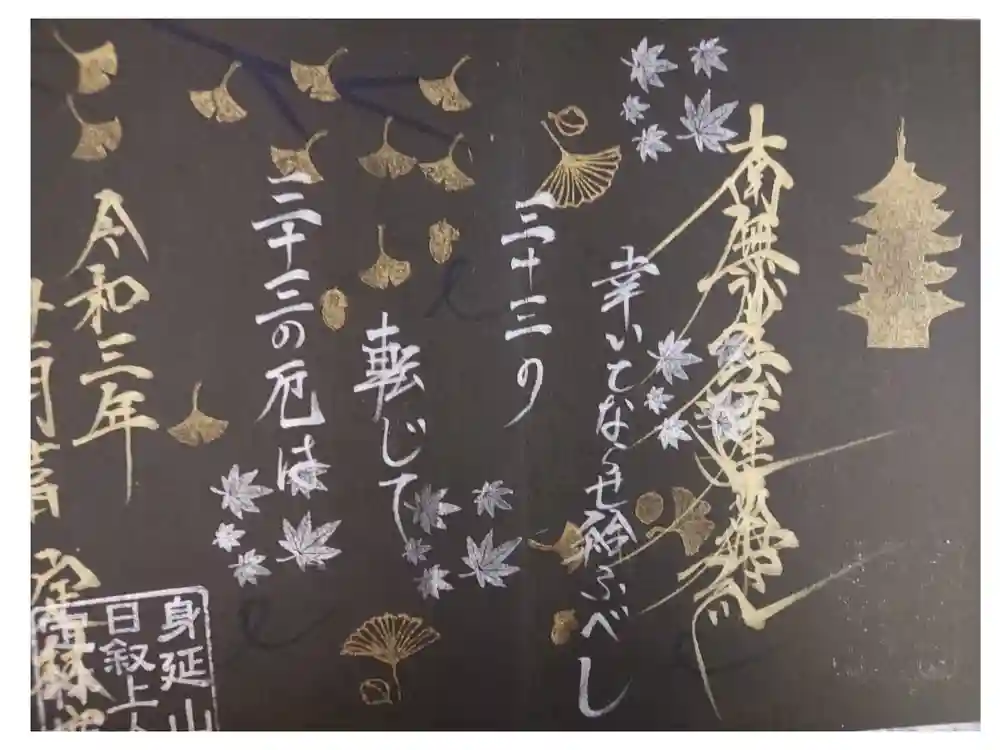 南無妙法蓮華経
三十三の厄は
転じて
三十三の
幸いとならせ給ふべし
令和三年
身延山
日叙上人